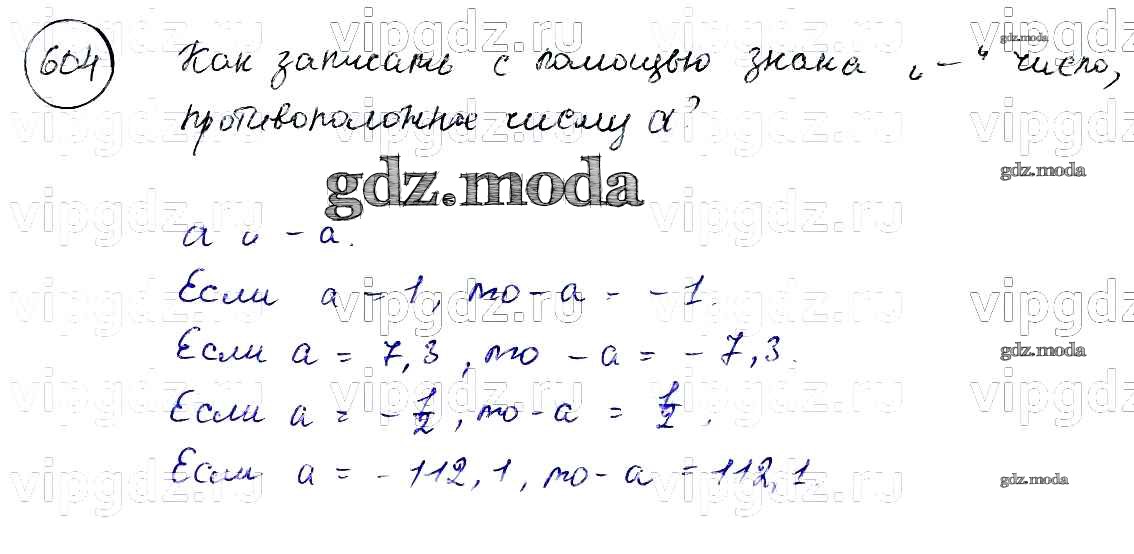 604 Как записать с помощью знака „ – “ число,
противоположное числу a?
gdz.moda
a и - a.
Если a = 1, то - a = - 1.
Если a = 7,3, то - a = - 7,3.
Если a = - 1/2, то - a = 1/2.
Если a = - 112,1, то - a = 112,1.
vipgdz.ru
gdz.moda